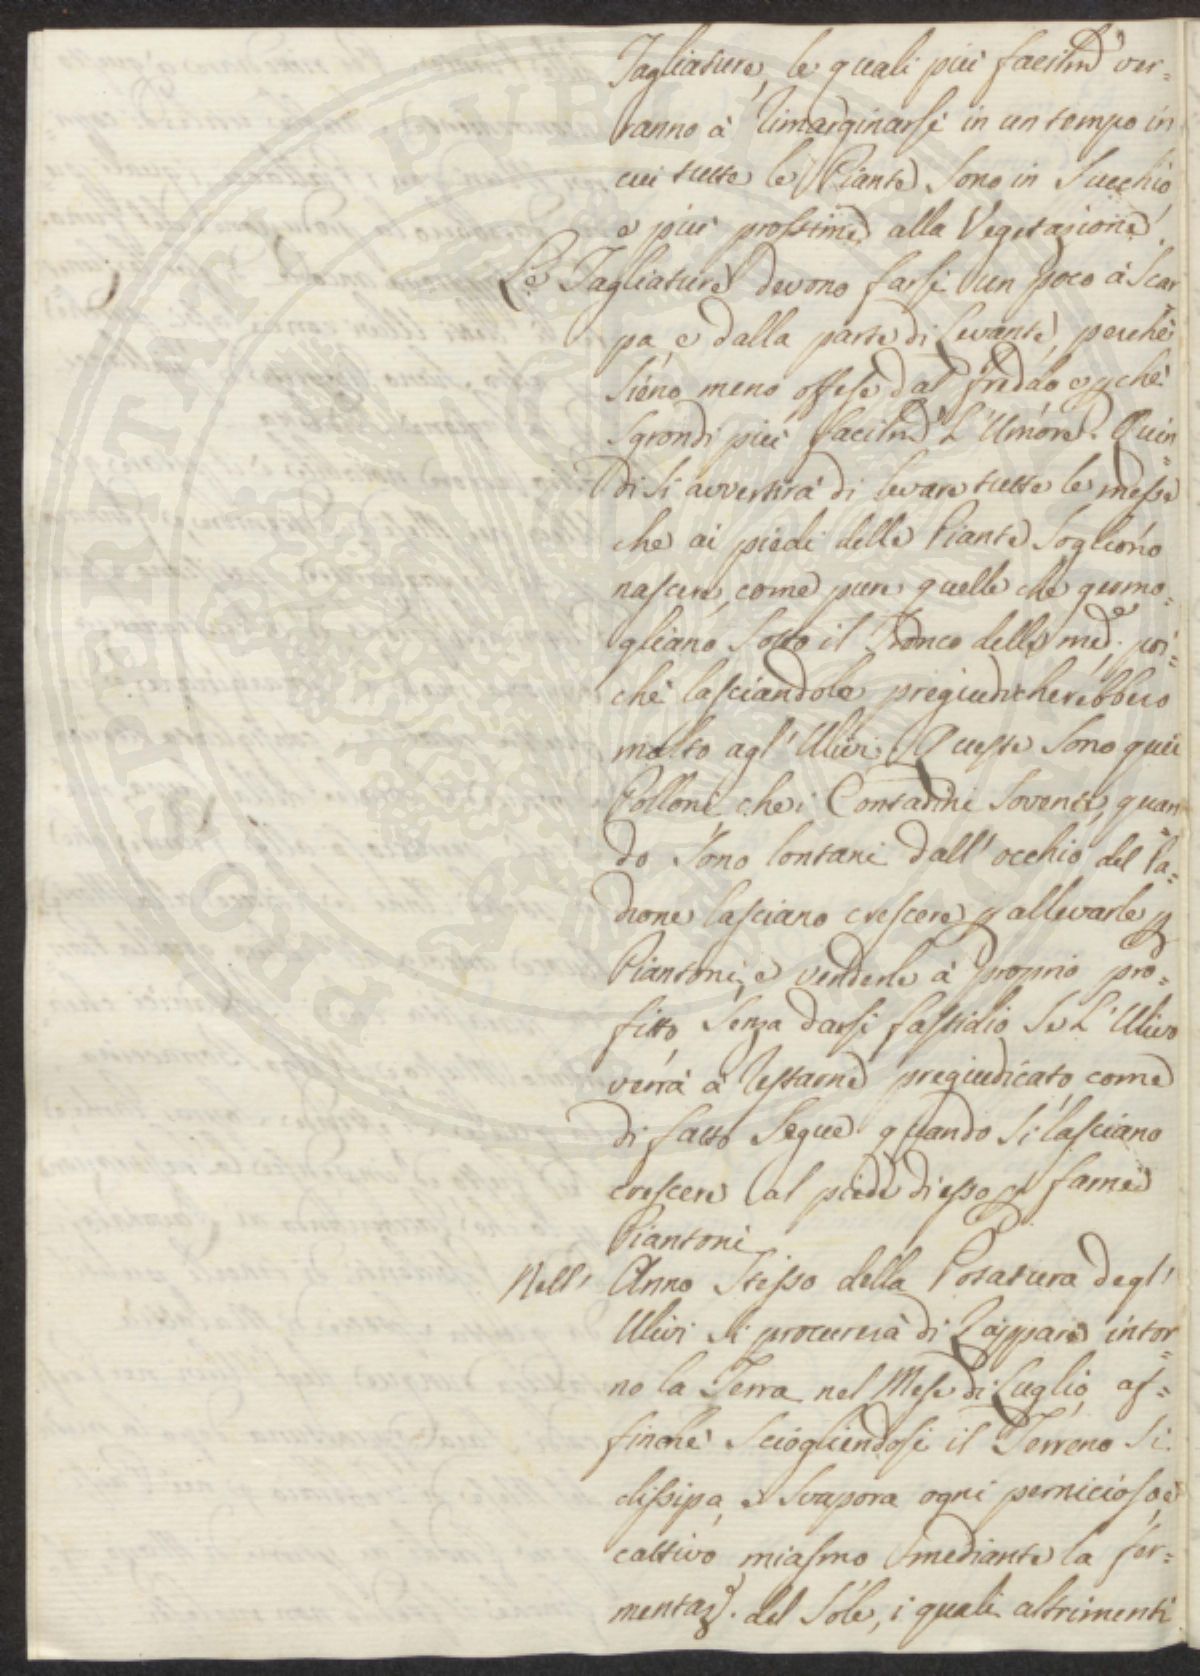 Tagliature, le quali più facilmᵉ ver=
ranno à rimarginarsi in un tempo in
cui tutte le Piante sono in Succhio
e più prossime alla Vegetazione.
Le Tagliature devono farsi un poco à Scar=
pa, e dalla parte di Levante, perchè
sieno meno offese dal freddo, e pchè
sgrondi più facilmᵉ L'Umore. Quin=
di si avvertirà di levare tutte le messe
che ai piedi delle Piante sogliono
nascere, come pure quelle che germo=
gliano sotto il Tronco delle medᵉ. poi=
chè lasciandole pregiudicherebbero
molto agl'Ulivi. Queste sono quei
Polloni, che i Contadini sovente, quan=
do sono lontani dall'occhio del Pa=
drone lasciano crescere p allevarle p
Piantoni, e venderle à proprio pro=
fitto, senza darsi fastidio se L'Ulivo
verrà à restarne pregiudicato, come
di fatto segue quando si lasciano
crescere al piede di esso p farne
Piantoni.
Nell' Anno stesso della Potatura degl'
Ulivi si procurerà di Zappare intor=
no la Terra nel Mese di Luglio, af=
finchè sciogliendosi il Terreno si
dissipa, e svapora ogni pernicioso, e
cattivo miasmo mediante la fer=
mentazᵉ. del Sole, i quali altrimenti
PROSPERITATI PVBLI